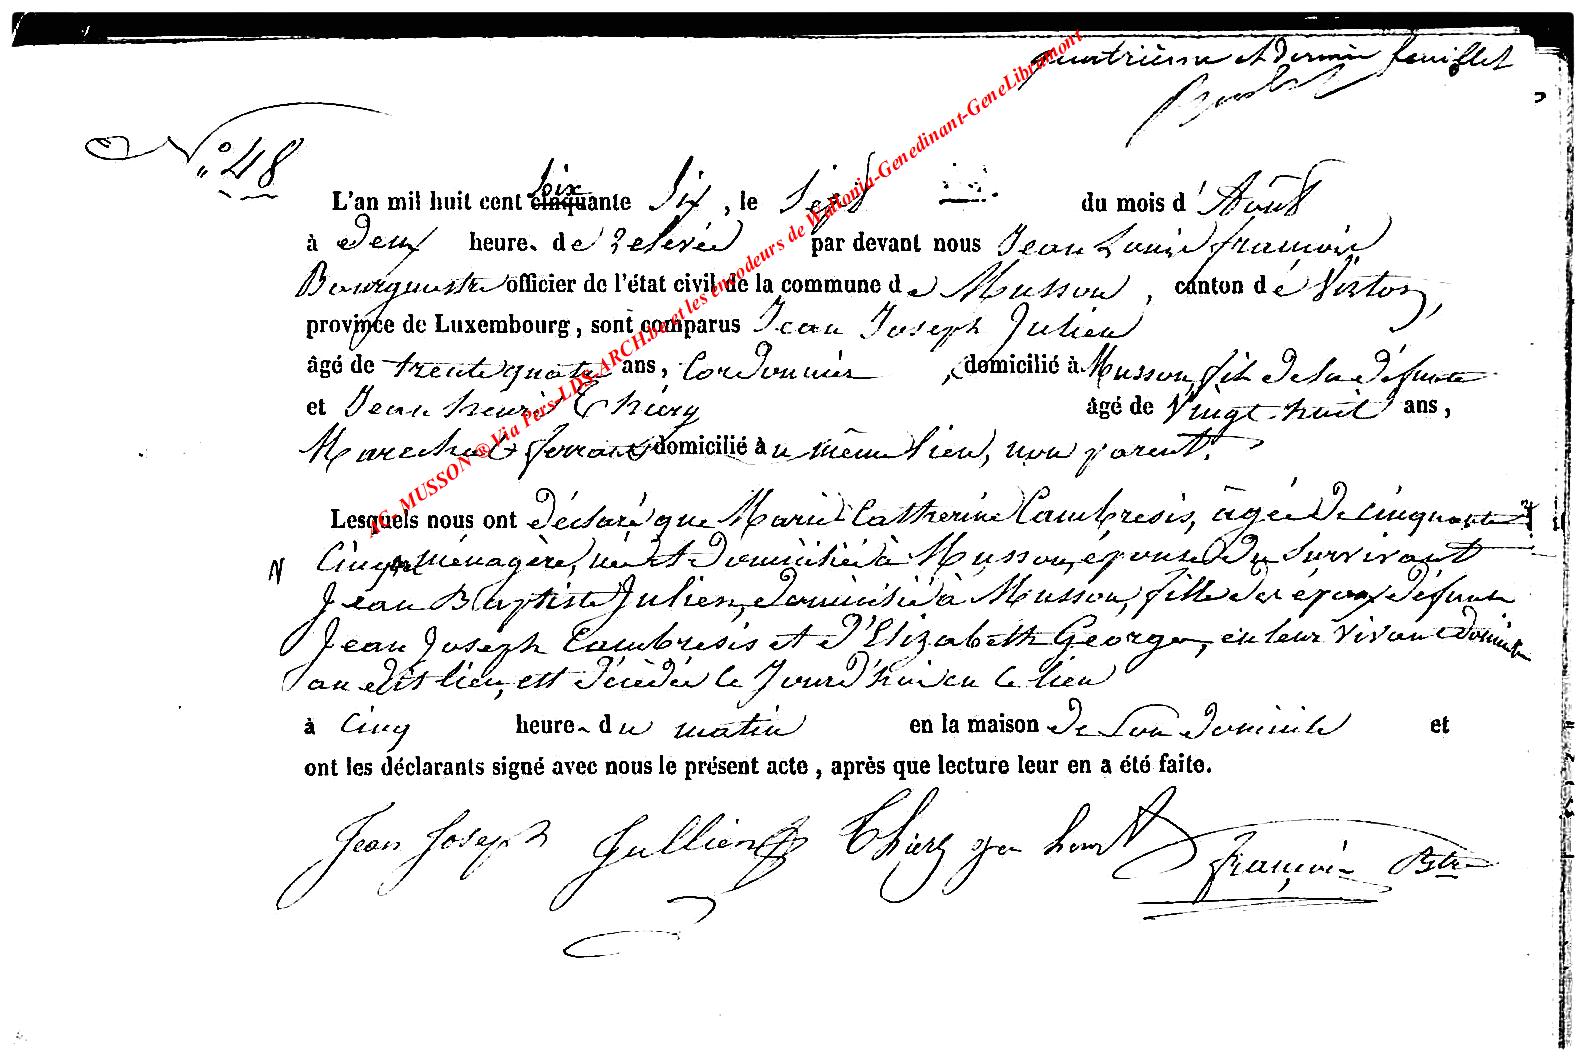 quatrième et dernier feuillet
N° 48
L'an mil huit cent cinquante soixante Six, le Sept du mois d'Août
à deux heure. de relevée par devant nous Jean Louis françois
Bourgmestre officier de l'état civil de la commune de Musson, canton dé Virton,
province de Luxembourg, sont comparus Jean Joseph Julien
âgé de trente quatre ans, Cordonnier, domicilié à Musson, fils de la défunte
et Jean henri Thiéry âgé de Vingt-huit ans,
Marechal ferrant domicilié au même lieu, non parent.
Lesquels nous ont déclaré que Marie Catherine Cambresis, âgée de cinquante
cinq ménagère, née et domiciliée à Musson, épouse du Survivant
Jean Baptiste Julien, domicilié à Musson, fille des époux défunts
Jean Joseph Cambresis et d'Elizabeth George, en leur vivant domiciliés
au dit lieu, est décédée ce Jourd'hui en ce lieu
à cinq heure. du matin en la maison de Son domicile et
ont les déclarants signé avec nous le présent acte, après que lecture leur en a été faite.
Jean Joseph Jullien Thiery françois Bstre
AC- MUSSON ®Via Pers-LDS-ARCH.be et les encodeurs de Wallonia-Genedinant-GeneLibramont